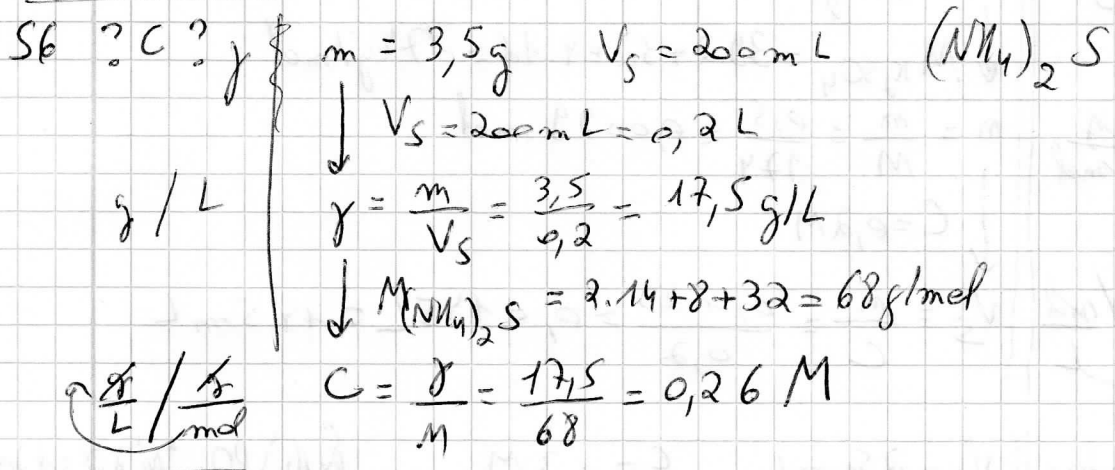 S6 ? C ? γ m = 3,5g Vs = 200mL (NH4)2 S
Vs = 200mL = 0,2 L
g / L γ = m/Vs = 3,5/0,2 = 17,5 g/L
M(NH4)2S = 2.14+8+32 = 68g/mol
g/L / g/mol C = γ/M = 17,5/68 = 0,26 M